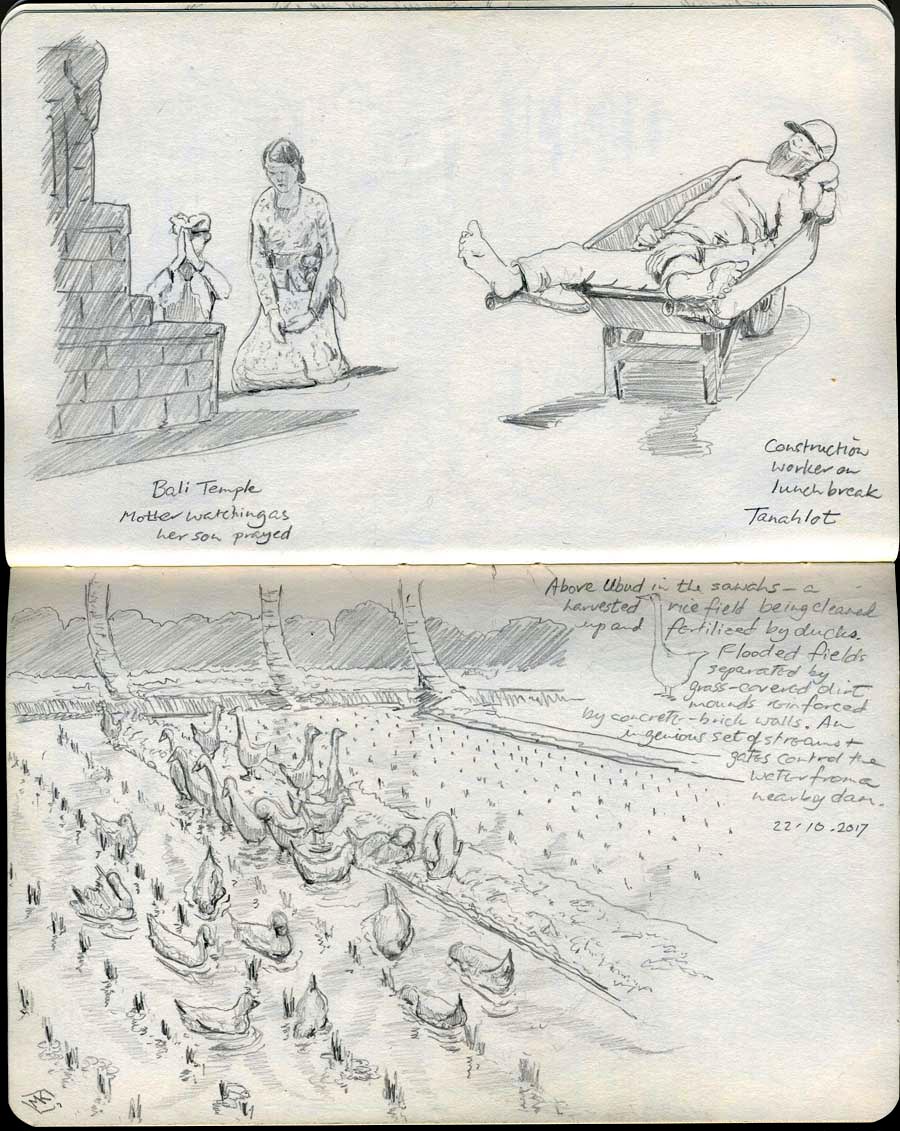 Bali Temple
Mother watching as
her son prayed
Construction
worker on
lunch break
Tanahlot
Above Ubud in the sawahs - a
harvested rice field being cleaned
up and fertilized by ducks.
Flooded fields
separated by
grass-covered dirt
mounds reinforced
by concrete-brick walls. An
ingenious set of streams +
gates control the
water from a
nearby dam.
22.10.2017